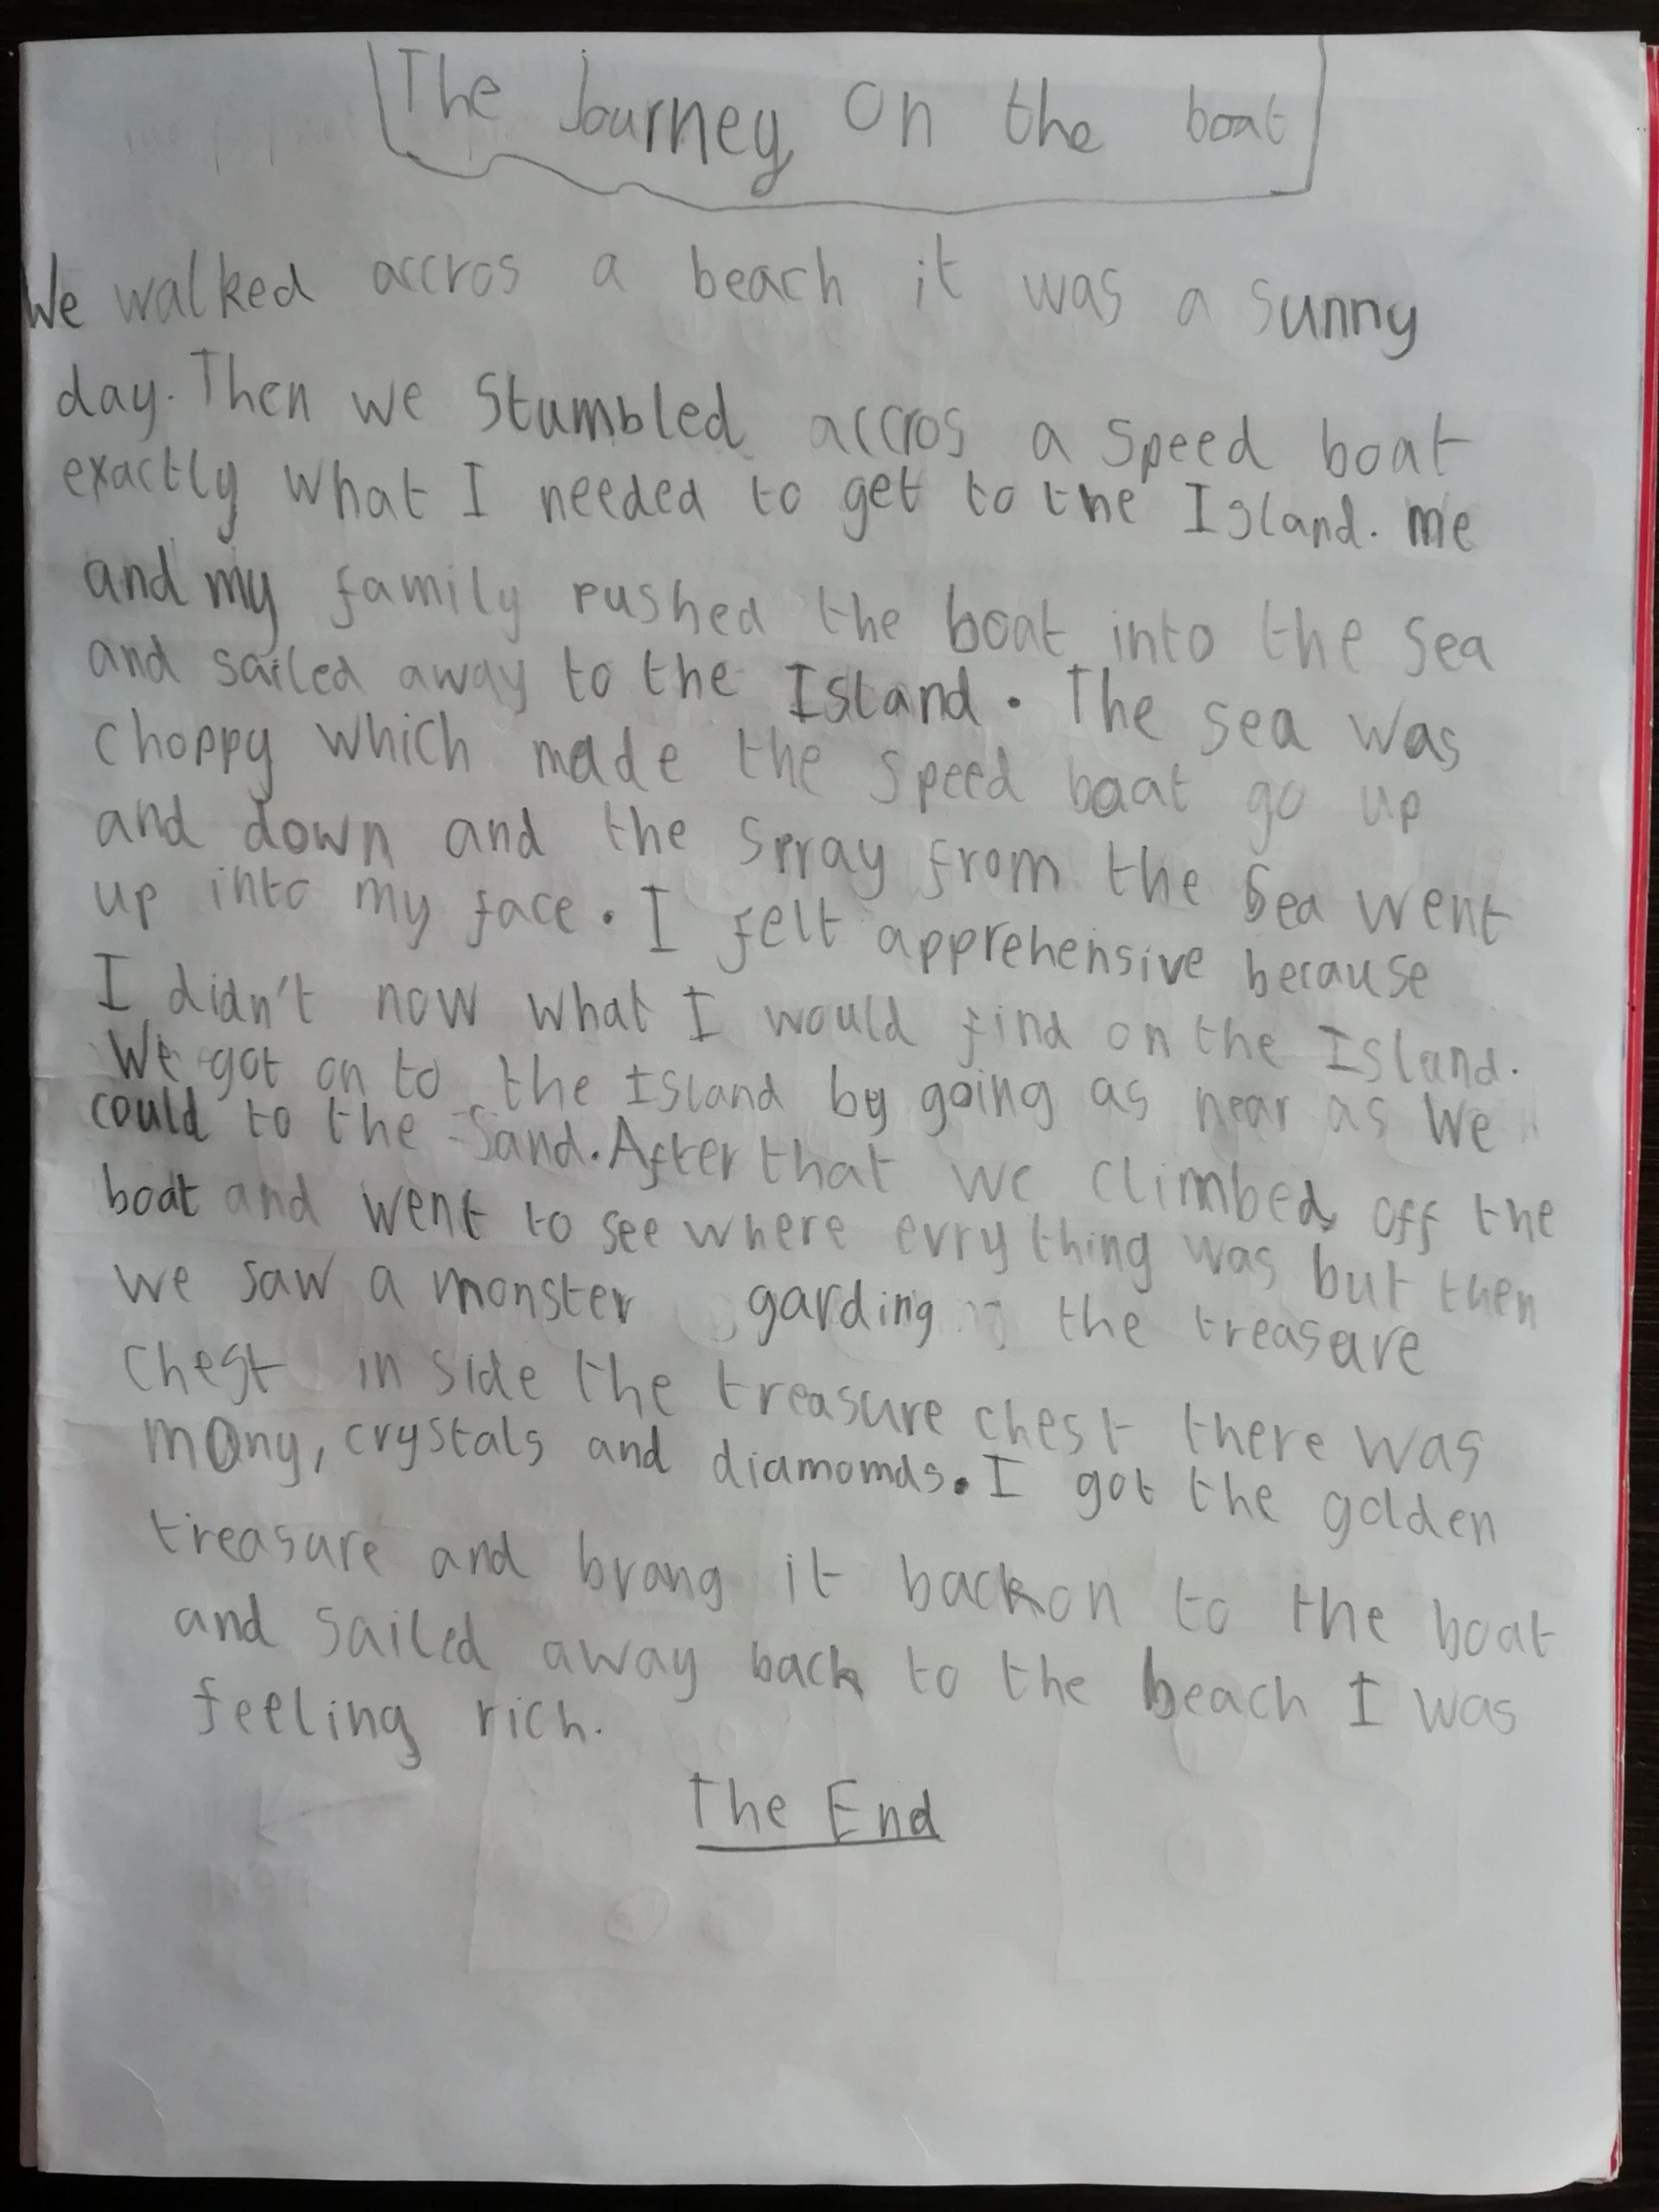 The Journey on the boat
We walked accros a beach it was a sunny
day. Then we stumbled accros a speed boat
exactly what I needed to get to the Island. me
and my family pushed the boat into the sea
and sailed away to the Island. The sea was
choppy which made the speed boat go up
and down and the spray from the sea went
up into my face. I felt apprehensive because
I didn't now what I would find on the Island.
We got on to the Island by going as near as we
could to the sand. After that we climbed off the
boat and went to see where evrything was but then
we saw a monster garding the treasure
chest in side the treasure chest there was
mony, crystals and diamomds. I got the golden
treasure and brang it back on to the boat
and sailed away back to the beach I was
feeling rich.
The End